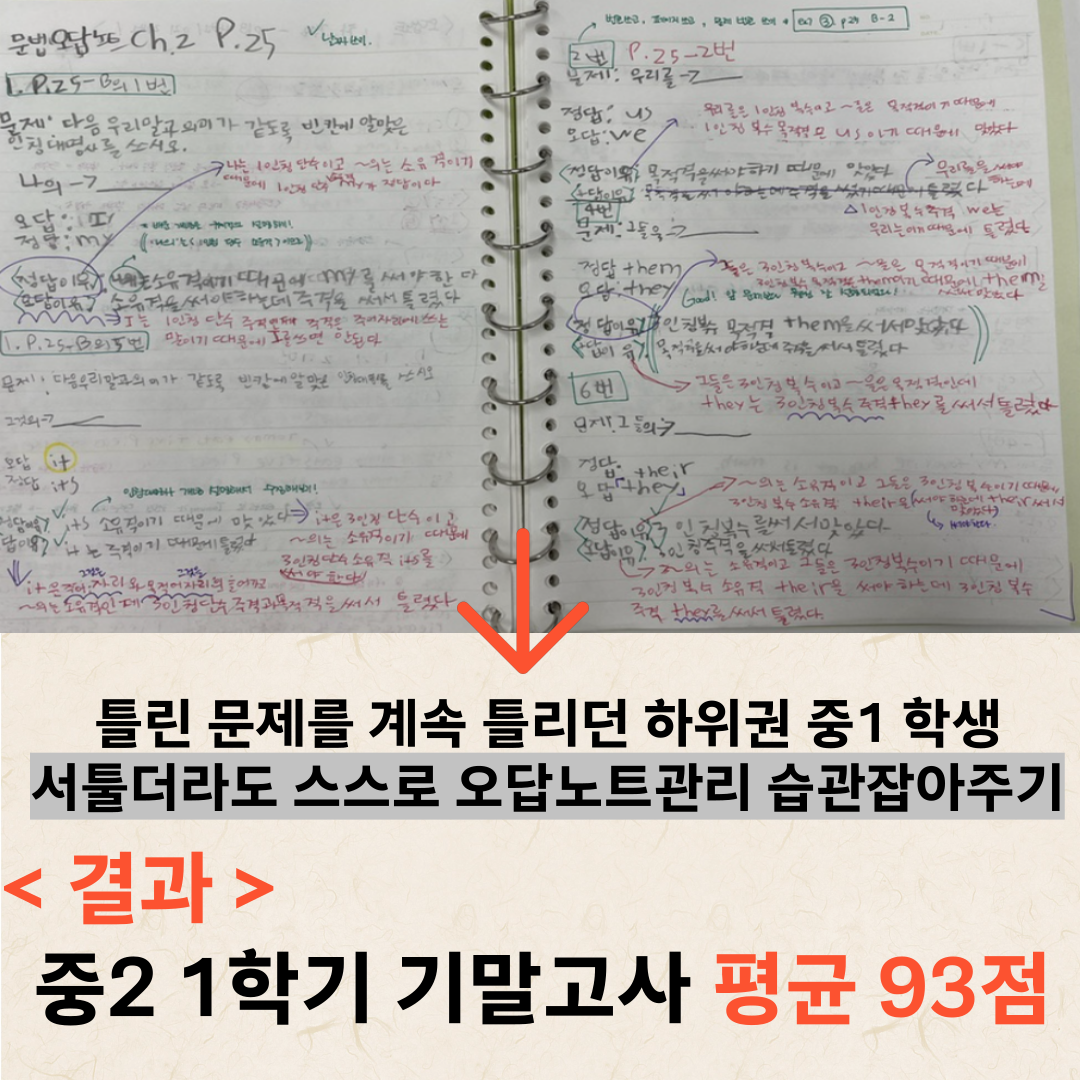 문법오답노트 Ch.2 P.25
날짜쓰기.
1. P.25-B의 1번
문제: 다음 우리말과 의미가 같도록 빈칸에 알맞은
인칭대명사를 쓰시오.
나의 ->
나는 1인칭 단수이고 ~의는 소유격이기
때문에 1인칭 단수 my가 정답이다
오답: I
정답: my
정답이유 소유격이기 때문에 my를 써야 한다
오답이유 소유격을 써야하는데 주격을 써서 틀렸다
I는 1인칭 단수 주격인데 주격은 주어자리에 쓰는
말이기 때문에 I을 쓰면 안된다
1. P.25-B의 5번
문제: 다음우리말과의미가 같도록 빈칸에알맞은 쓰시오
그것의->
오답 it
정답 its
its 소유격이기 때문에 맞았다
it는 주격이기 때문에 틀렸다
it은 3인칭 단수이고
~의는 소유격이기 때문에
3인칭단수 소유격 its를
써야 한다
그것은 그것을
it은 주어 자리와 목적어자리에 들어가고
~의는 소유격인데 3인칭단수 주격과목적격을 써서 틀렸다
P.24 B-2
2번 P.25-2번
문제: 우리를->
정답: us
오답: we
우리를은 1인칭 복수이고 ~를은 목적격이기 때문에
1인칭 복수 목적격 은 us이기 때문에 맞았다
정답이유 목적격을써야하기 때문에 맞았다
오답이유 목적격을써야하는데 주격을 썼기때문에틀렸다
1인칭복수주격 we는
우리는이기때문에 틀렸다
4번
문제: 그들을->
정답 them
오답: they
그들은 3인칭복수이고 ~을은 목적격이기 때문에
3인칭 복수 목적격은 them이기 때문에 them을
써서 맞았다
정답이유 3인칭복수 목적격 them을써서맞았다
오답이유 목적격을써야하는데 주격을써서 틀렸다
그들은3인칭 복수이고 ~을은목적격인데
they는 3인칭복수주격 they를 써서 틀렸다
6번
문제: 그들의->
정답: their
오답 they
~의는 소유격이고 그들은 3인칭복수이기 때문에
3인칭복수 소유격 their을 써야하는데 their 써서
맞았다
정답이유 3인칭복수를써서맞았다
오답이유 3인칭주격을써서틀렸다
~의는 소유격이고 그들은 3인칭복수이기 때문에
3인칭 복수 소유격 their을 써야 하는데 3인칭 복수
주격 they를써서 틀렸다.
틀린 문제를 계속 틀리던 하위권 중1 학생
서툴더라도 스스로 오답노트관리 습관잡아주기
< 결과 >
중2 1학기 기말고사 평균 93점